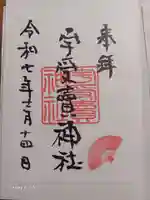 奉拝
宇受賣神社
令和七年十二月十四日